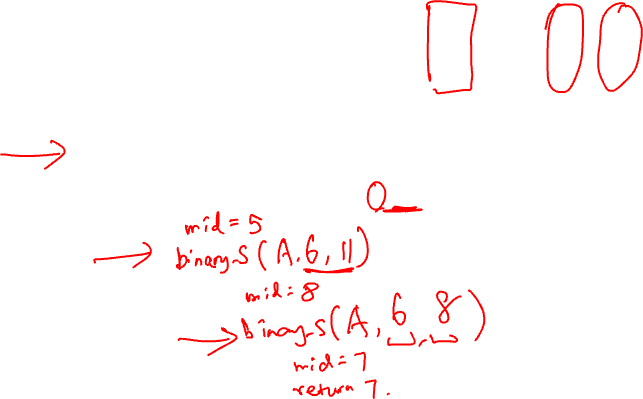 0
mid = 5
binary_S(A, 6, 11)
mid = 8
binary_S(A, 6, 8)
mid = 7
return 7.